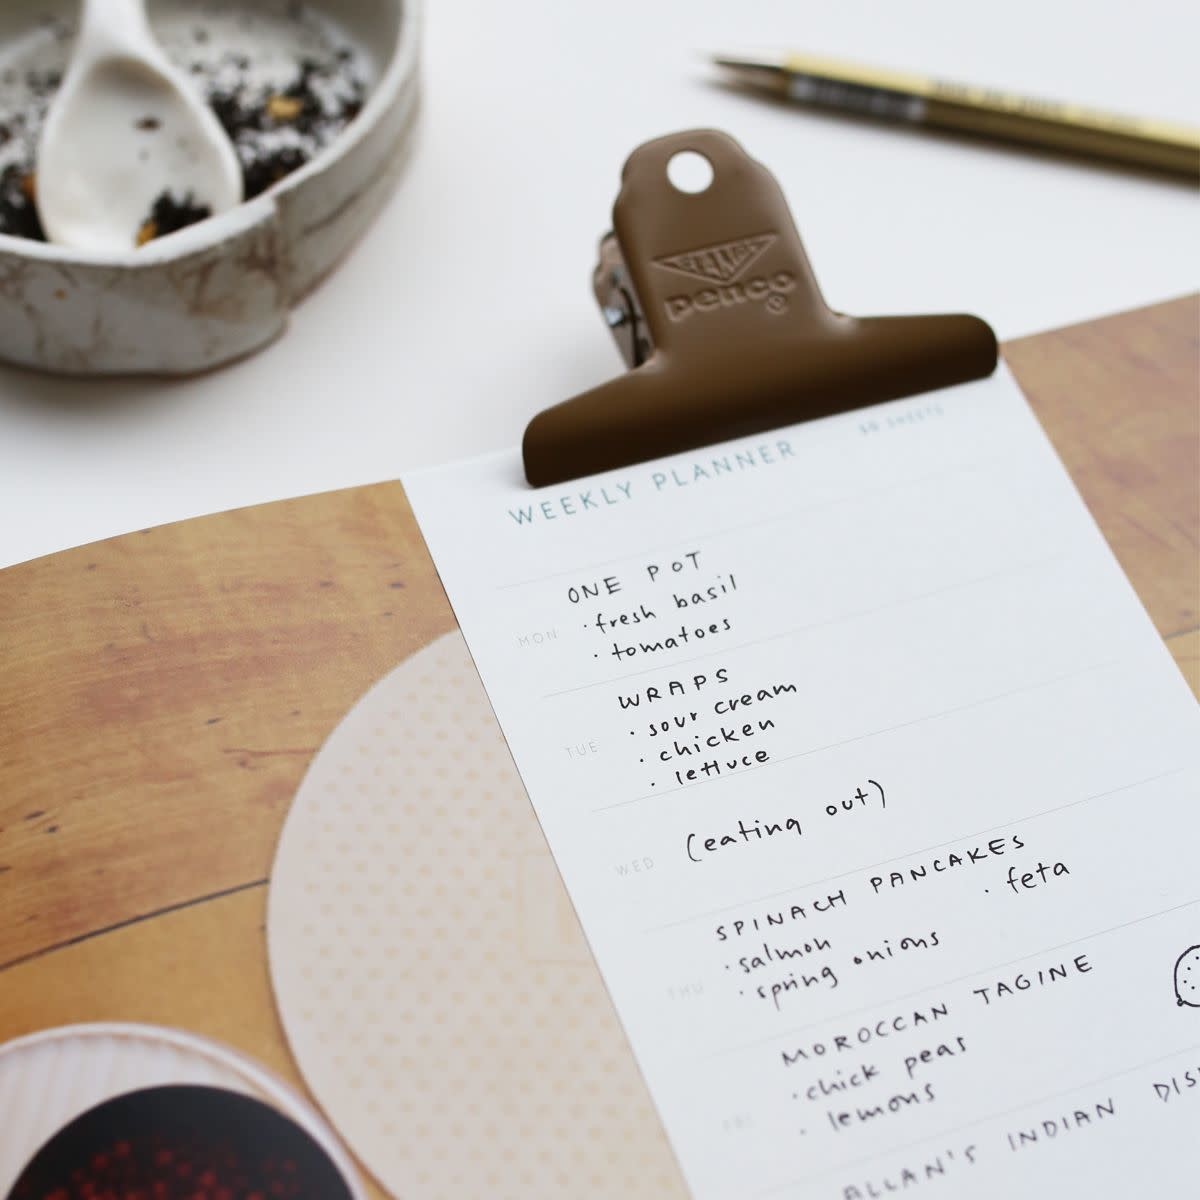 penco®
WEEKLY PLANNER
50 SHEETS
MON
ONE POT
· fresh basil
· tomatoes
TUE
WRAPS
· sour cream
· chicken
· lettuce
WED
(eating out)
THU
SPINACH PANCAKES
· salmon
· spring onions
· feta
FRI
MOROCCAN TAGINE
· chick peas
· lemons
ALLAN'S INDIAN